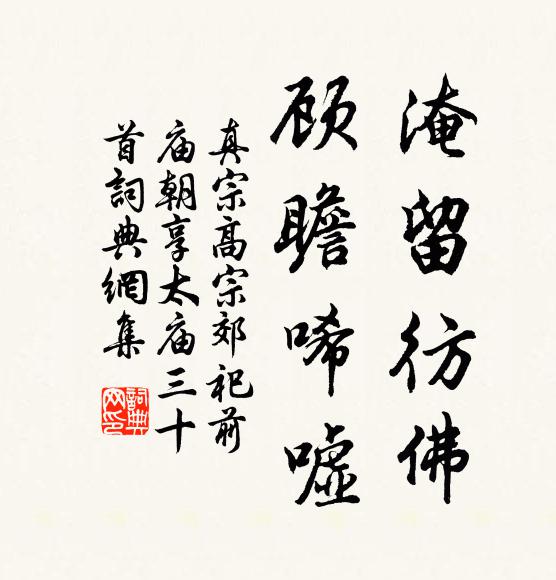 淹留彷佛
顾瞻唏嘘
真宗高宗郊祀前
庙朝享太庙三十
首詞典網集
詞典网印